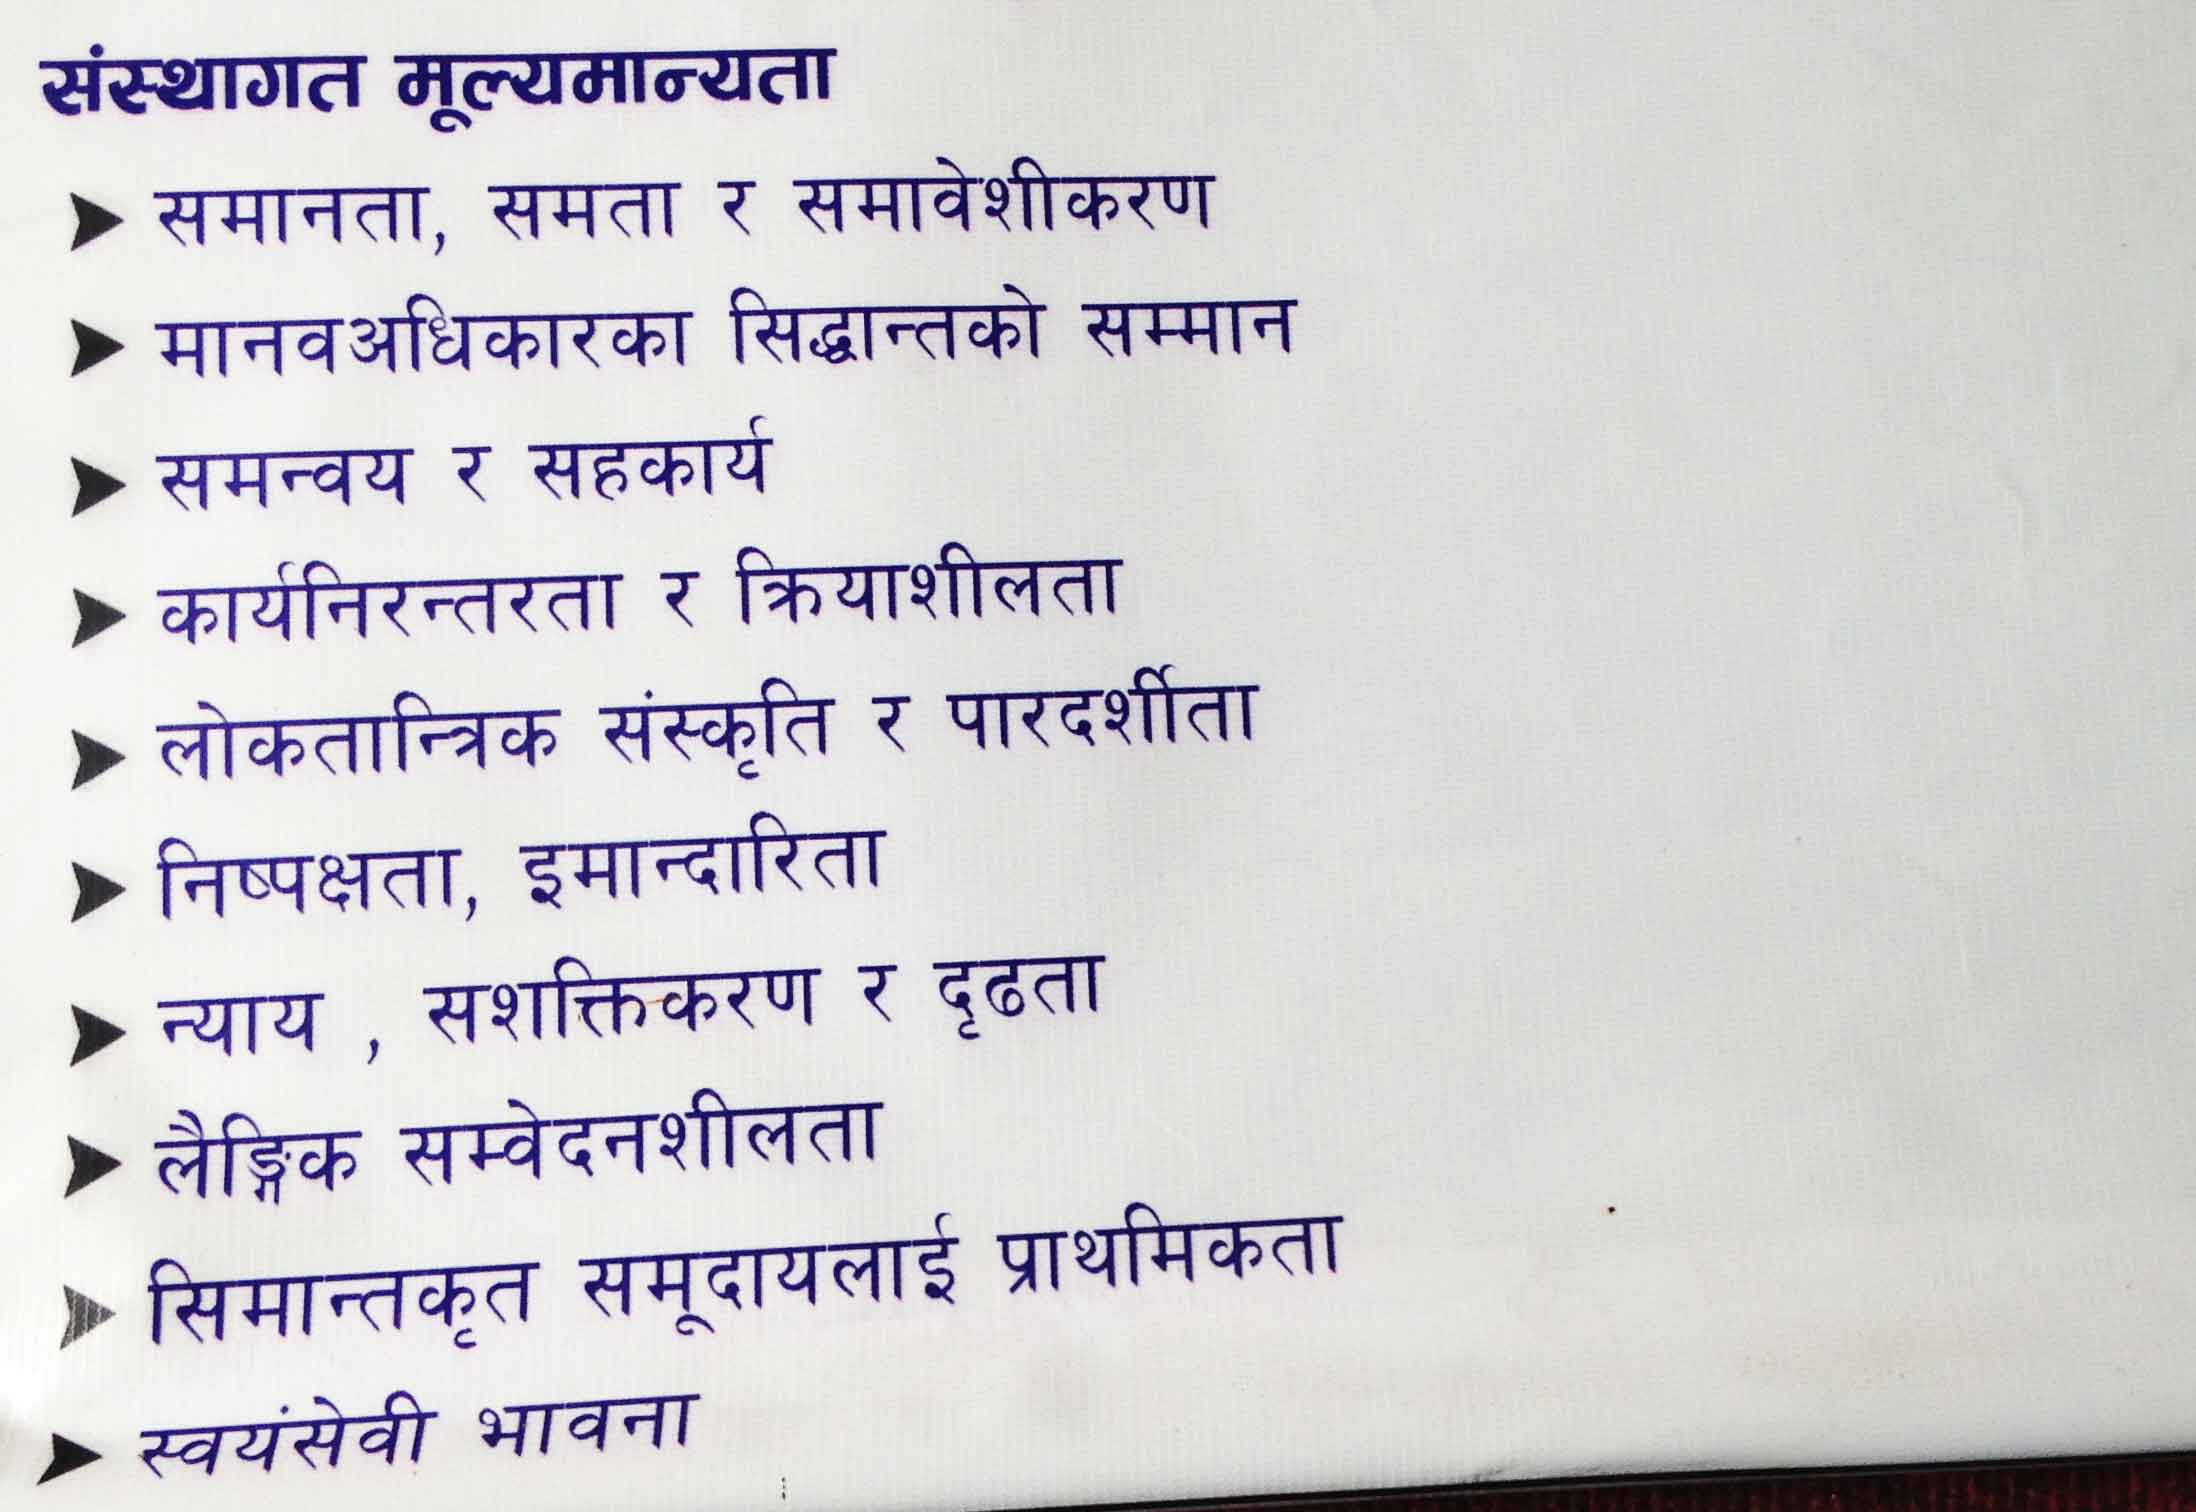 संस्थागत मूल्यमान्यता
➤ समानता, समता र समावेशीकरण
➤ मानवअधिकारका सिद्धान्तको सम्मान
➤ समन्वय र सहकार्य
➤ कार्यनिरन्तरता र क्रियाशीलता
➤ लोकतान्त्रिक संस्कृति र पारदर्शीता
➤ निष्पक्षता, इमान्दारिता
➤ न्याय , सशक्तिकरण र दृढता
➤ लैङ्गिक सम्वेदनशीलता
➤ सिमान्तकृत समूदायलाई प्राथमिकता
➤ स्वयंसेवी भावना